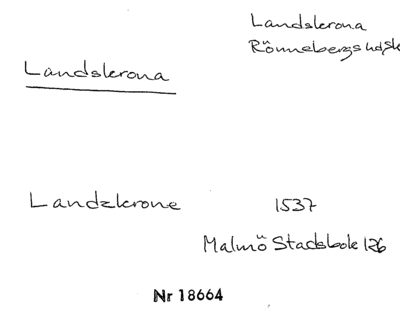 Landskrona
Rönnebergs hd, Sk
Landskrona
Landzkrone 1537
Malmö Stadsbok 126
Nr 18664